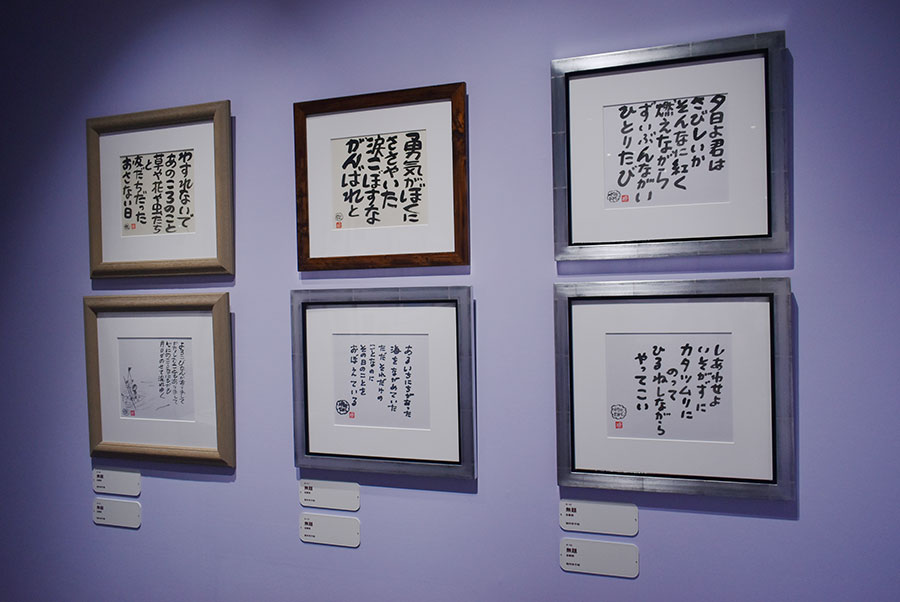 わすれないで
あのころのこと
草や花や虫たち
と
友だちだった
おさない日
勇気がぼくに
ささやいた
涙こぼすな
がんばれと
夕日よ君は
さびしいか
そんなに紅く
燃えながら
ずいぶんながい
ひとりたび
あるいちにちがあった
海をながめていた
ただそれだけの
ことなのに
その日のことを
おぼえている
しあわせよ
いそがずに
カタツムリに
のって
ひるねしながら
やってこい
無題
無題
無題
無題
無題
無題